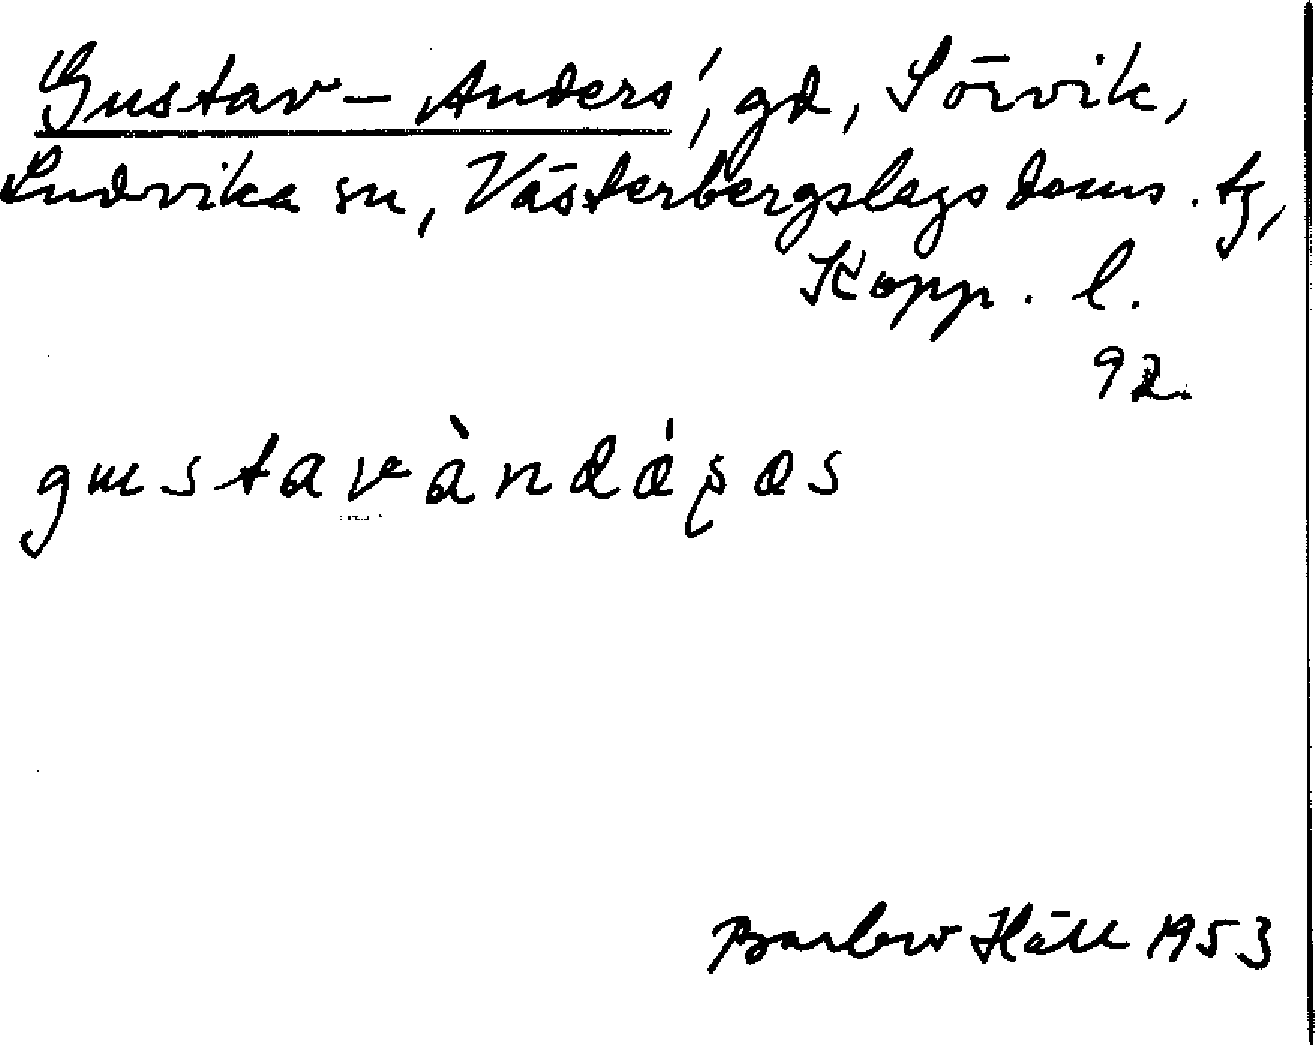 Gustav-Anders', gd, Sörvik,
Ludvika sn, Västerbergslags doms. tg,
Kopp. l.
92.
gustavàndáʂas
1953